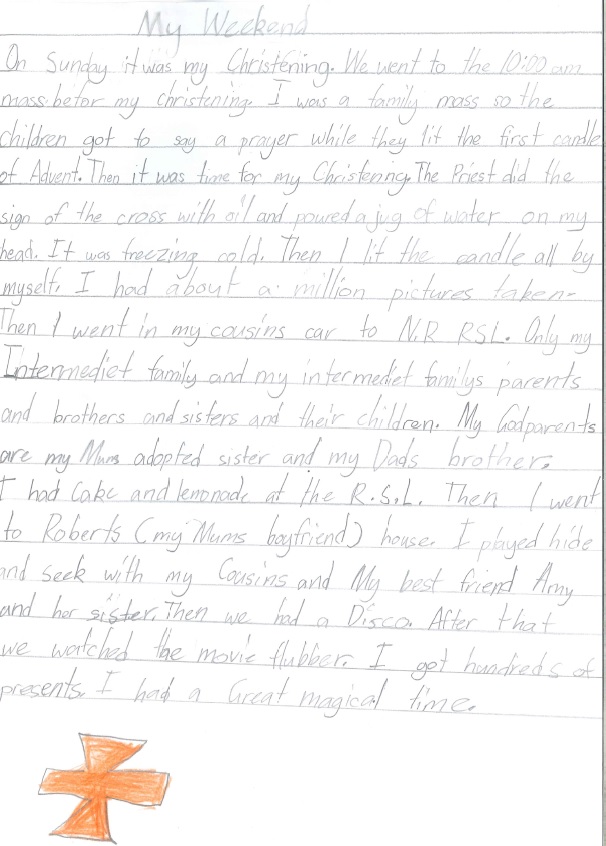 My Weekend
On Sunday it was my Christening. We went to the 10:00 am
mass befor my christening. I was a family mass so the
children got to say a prayer while they lit the first candle
of Advent. Then it was time for my Christening. The Priest did the
sign of the cross with oil and powed a jug of water on my
head. It was freezing cold. Then I lit the candle all by
myself. I had about a million pictures taken.
Then I went in my cousins car to N.R RSL. Only my
Intermediet family and my intermediet familys parents
and brothers and sisters and their children. My Godparents
are my Mums adopted sister and my Dads brother.
I had Cake and lemonade at the R.S.L. Then I went
to Roberts (my Mums boyfriend) house. I played hide
and seek with my Cousins and My best friend Amy
and her sister. Then we had a Disco. After that
we watched the movie flubber. I got hundreds of
presents. I had a Great magical time.